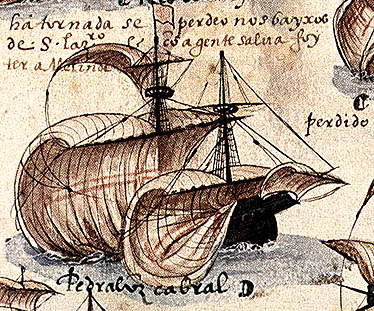 há tornada se perdeo nos bayxos
de S. lazro e a gente salua foy
ter a Melinde
perdido
Pedraluz cabral D